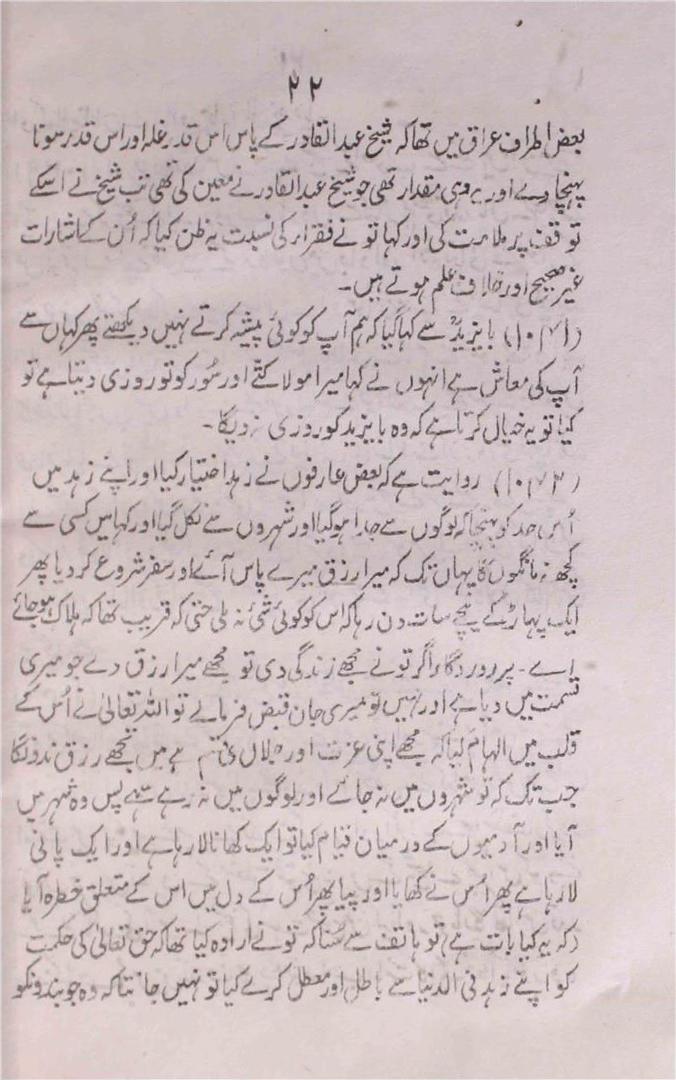 ۲۲
بعض اطراف عراق میں تھا کہ شیخ عبدالقادر کے پاس اس قدر غلہ اور اس قدر سونا
پہنچا دے اور یہ وہی مقدار تھی جو شیخ عبدالقادر نے معین کی تھی تب شیخ نے اسکے
توقف پر ملامت کی اور کہا تو نے فقراء کی نسبت یہ ظن کیا کہ اُن کے اشارات
غیر صحیح اور خلاف علم ہوتے ہیں۔
بایزیدؒ سے کہا گیا کہ ہم آپ کو کوئی پیشہ کرتے نہیں دیکھتے پھر کہاں سے
آپ کی معاش ہے انہوں نے کہا میرا مولا کتّے اور سُور کو تو روزی دیتا ہے تو
کیا تو یہ خیال کرتا ہے کہ وہ بایزید کو روزی نہ دیگا۔
روایت ہے کہ بعض عارفوں نے زہد اختیار کیا اور اپنے زہد میں
اُس حد کو پہنچا کہ لوگوں سے جدا ہوگیا اور شہروں سے نکل گیا اور کہا میں کسی سے
کچھ نہ مانگوں گا یہاں تک کہ میرا رزق میرے پاس آئے اور سفر شروع کردیا پھر
ایک پہاڑ کے نیچے سات دن رہا کہ اس کو کوئی شئ نہ ملی حتی کہ قریب تھا کہ ہلاک ہوجائے
اے۔ پروردگار اگر تو نے مجھے زندگی دی تو مجھے میرا رزق دے جو میری
قسمت میں دیا ہے اور نہیں تو میری جان قبض فرمالے تو اللہ تعالیٰ نے اُس کے
قلب میں الہام کیا کہ مجھے اپنی عزت اور جلال کی قسم ہے میں تجھے رزق ندونگا
جب تک کہ تو شہروں میں نہ جائے اور لوگوں میں نہ رہے سہے پس وہ شہر میں
آیا اور آدمیوں کے درمیان قیام کیا تو ایک کھانا لا رہا ہے اور ایک پانی
لا رہا ہے پھر اُس نے کھایا اور پیا پھر اُس کے دل میں اس کے متعلق خطرہ آیا
(کہ یہ کیا بات ہے) تو ہاتف سے سُنا کہ تو نے ارادہ کیا تھا کہ حق تعالیٰ کی حکمت
کو اپنے زہد فی الدنیا سے باطل اور معطل کرے کیا تو نہیں جانتا کہ وہ جو بندونکو